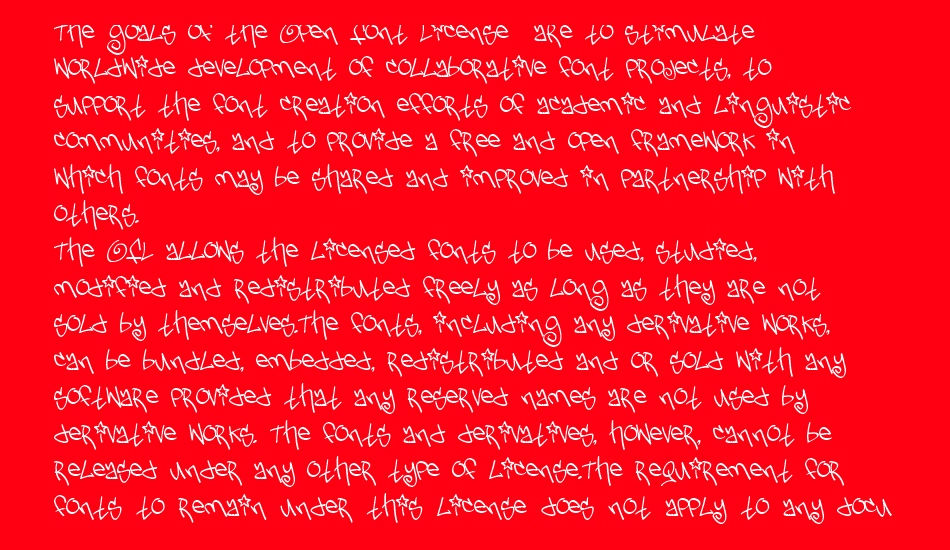 The goals of the Open Font License are to stimulate
worldwide development of collaborative font projects, to
support the font creation efforts of academic and linguistic
communities, and to provide a free and open framework in
which fonts may be shared and improved in partnership with
others.
The OFL allows the licensed fonts to be used, studied,
modified and redistributed freely as long as they are not
sold by themselves.The fonts, including any derivative works,
can be bundled, embedded, redistributed and or sold with any
software provided that any reserved names are not used by
derivative works. The fonts and derivatives, however, cannot be
released under any other type of license.The requirement for
fonts to remain under this license does not apply to any docu